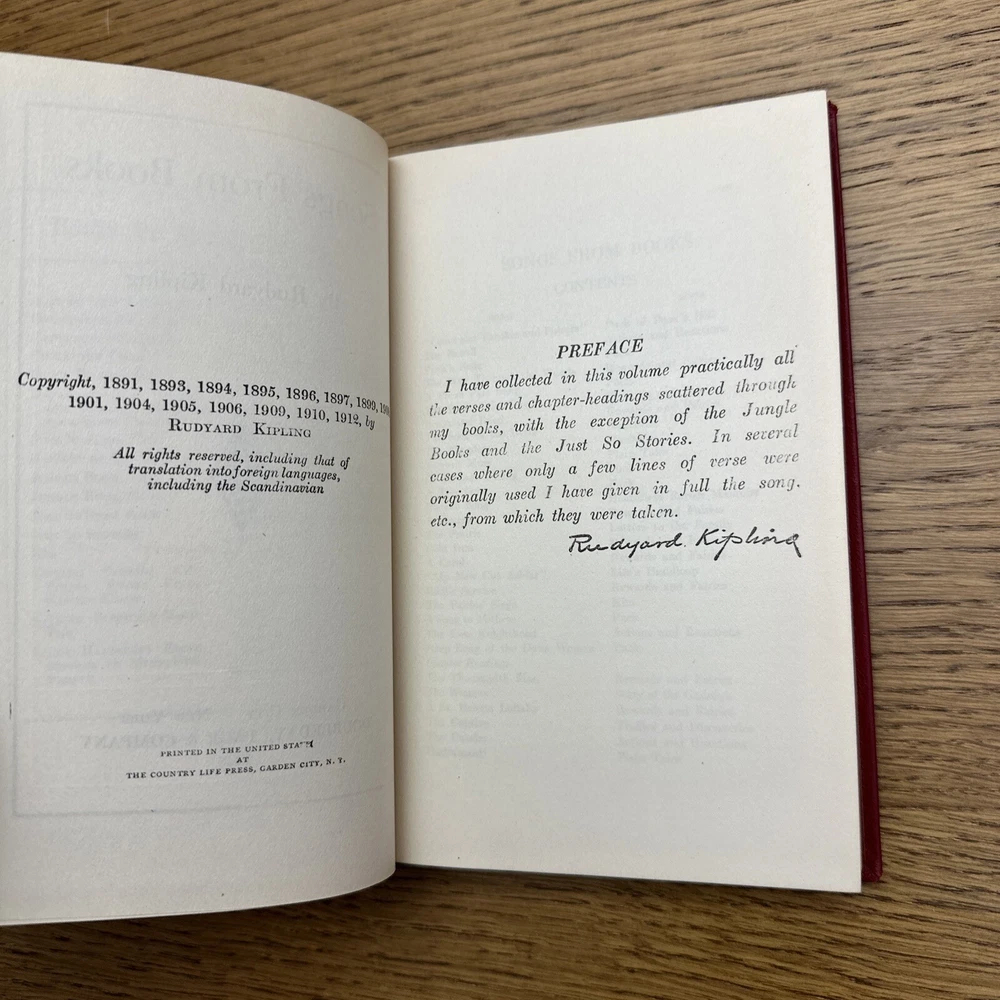 Copyright, 1891, 1893, 1894, 1895, 1896, 1897, 1899,
1901, 1904, 1905, 1906, 1909, 1910, 1912, by
RUDYARD KIPLING
All rights reserved, including that of
translation into foreign languages,
including the Scandinavian
PRINTED IN THE UNITED STATES
AT
THE COUNTRY LIFE PRESS, GARDEN CITY, N. Y.
PREFACE
I have collected in this volume practically all
the verses and chapter-headings scattered through
my books, with the exception of the Jungle
Books and the Just So Stories. In several
cases where only a few lines of verse were
originally used I have given in full the song,
etc., from which they were taken.
Rudyard Kipling